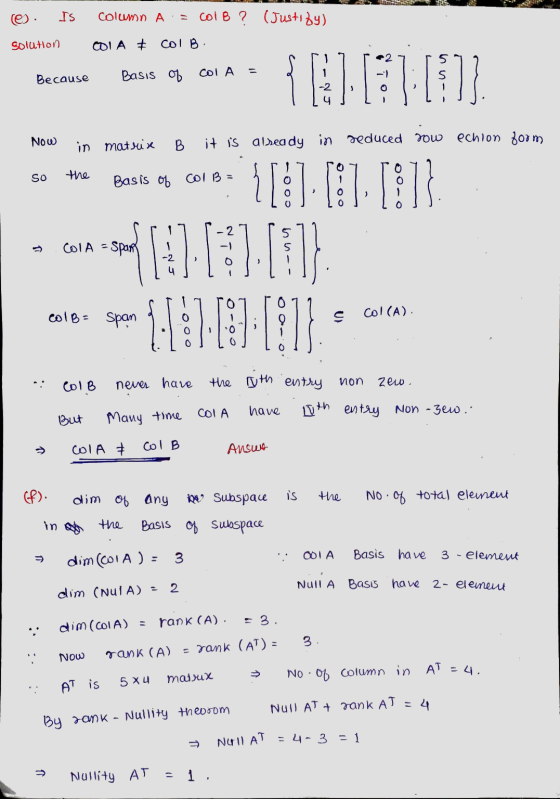 (e). Is Column A = Col B ? (Justify)
Solution Col A ≠ Col B.
Because Basis of Col A = { [1 1 -2 4], [-2 -1 0 1], [5 5 1 1] }.
Now in matrix B it is already in reduced row echlon form
so the Basis of Col B = { [1 0 0 0], [0 1 0 0], [0 0 1 0] }.
⇒ Col A = Span { [1 1 -2 4], [-2 -1 0 1], [5 5 1 1] }.
Col B = Span { [1 0 0 0], [0 1 0 0], [0 0 1 0] } ⊆ Col(A).
∵ Col B never have the IVth entry non zero.
But Many time Col A have IVth entry Non-zero.
⇒ Col A ≠ Col B Answer
(f). dim of any subspace is the No. of total element
in the Basis of subspace
⇒ dim(Col A) = 3 ∵ Col A Basis have 3 - element
dim (Nul A) = 2 Null A Basis have 2 - element
∵ dim(Col A) = rank(A). = 3.
∵ Now rank(A) = rank(Aᵀ) = 3.
∵ Aᵀ is 5x4 matrix ⇒ No. of column in Aᵀ = 4.
By rank - Nullity theorom Null Aᵀ + rank Aᵀ = 4
⇒ Null Aᵀ = 4 - 3 = 1
⇒ Nullity Aᵀ = 1.